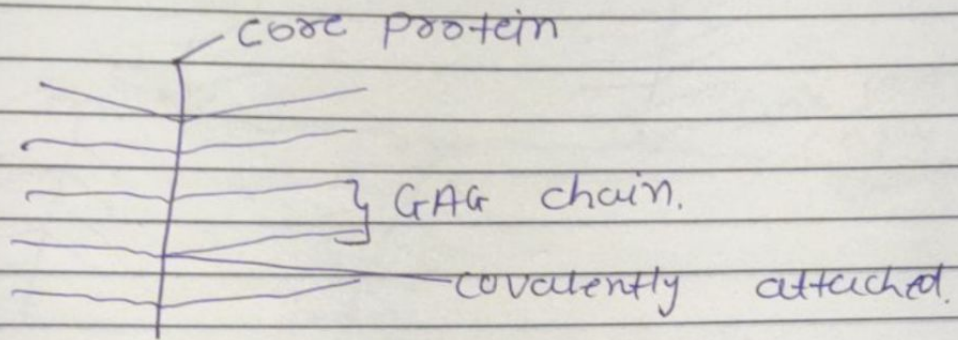 core protein
GAG chain.
covalently attached.